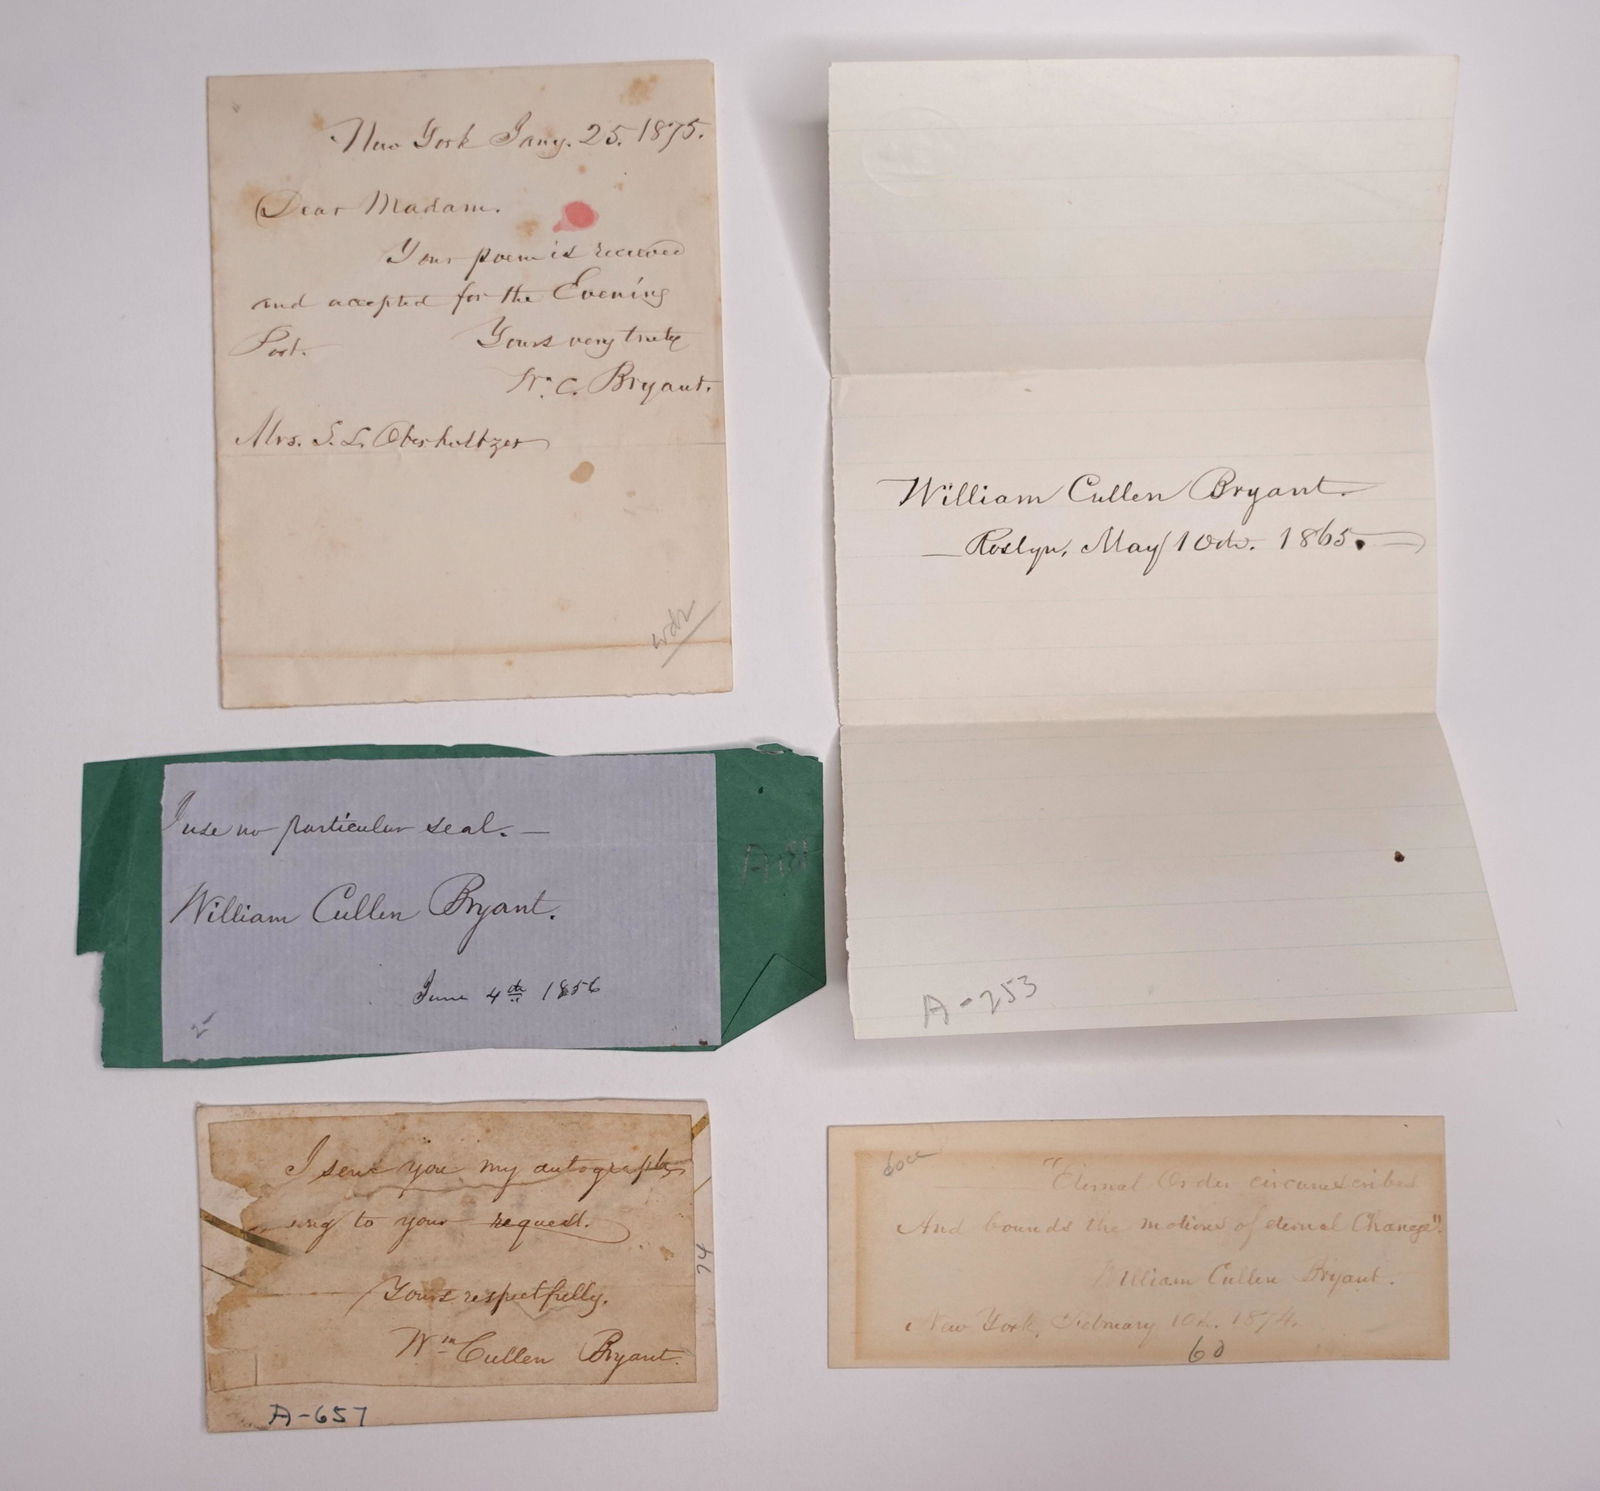 New York Jany. 25. 1875.
Dear Madam.
Your poem is received
and accepted for the Evening
Post.
Yours very truly
Wm. C. Bryant.
Mrs. S. L. Oberholtzer
William Cullen Bryant.
Roslyn, May 10th. 1865.
A-253
I use no particular seal. —
William Cullen Bryant.
June 4th 1856
I send you my autograph
to your request.
Yours respectfully.
Wm Cullen Bryant.
A-657
"Eternal Order circumscribes
And bounds the motions of eternal Change".
William Cullen Bryant.
New York, February 10th. 1874.
60